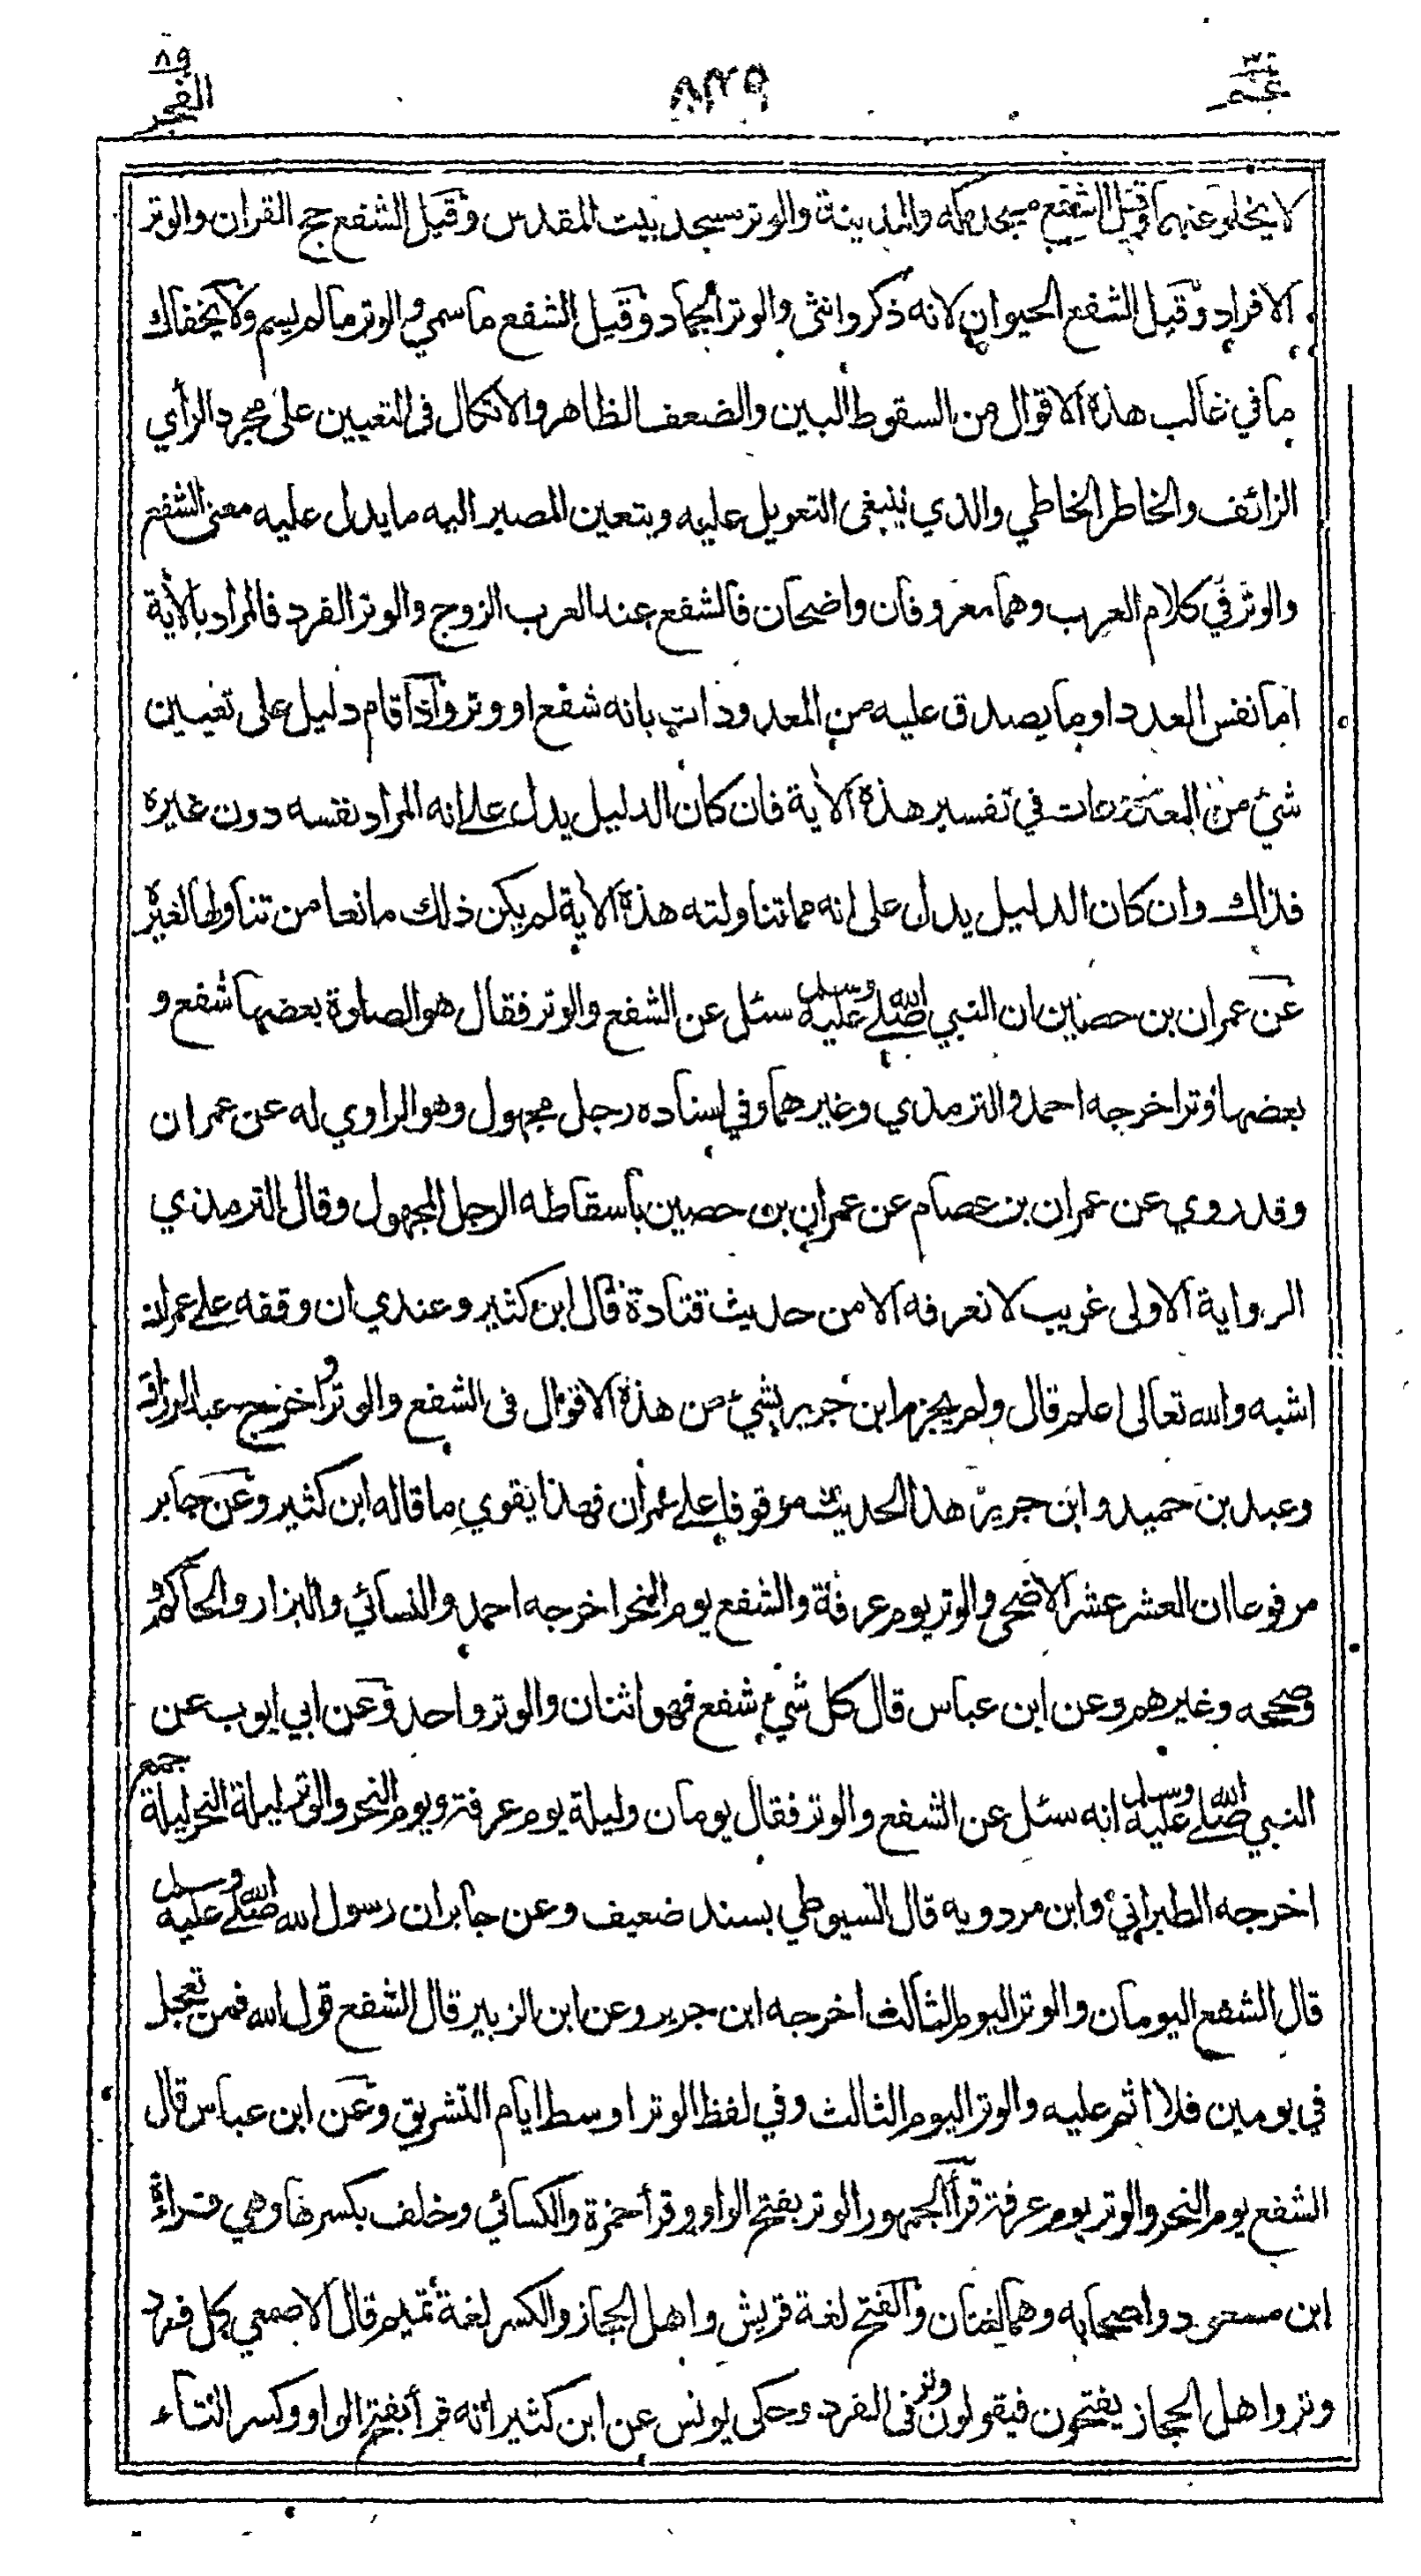 عم
٨٩
الفجر
لا يخلو عنهما وقيل الشفع مسجد مكه والمدينة والوتر مسجد بيت المقدس وقيل الشفع حج القران والوتر
الافراد وقيل الشفع الحيوان لانه ذكر وانثى والوتر الجماد وقيل الشفع ما سمي والوتر ما لم يسم ولا يخفاك
ما في غالب هذه الاقوال من السقوط البين والضعف الظاهر والاتكال في التعيين على مجرد الرأي
الزائف والخاطر الخاطي والذي ينبغي التعويل عليه ويتعين المصير اليه ما يدل عليه معنى الشفع
والوتر في كلام العرب وهما معروفان واضحان فالشفع عند العرب الزوج والوتر الفرد فالمراد بالأية
اما نفس العدد او ما يصدق عليه من المعدودات بانه شفع او وتر واذا قام دليل على تعيين
شئ من المعدودات في تفسير هذه الأية فان كان الدليل يدل على انه المراد نفسه دون غيره
فذاك وان كان الدليل يدل على انه مما تناولته هذه الأية لم يكن ذلك مانعا من تناولها لغيره
عن عمران بن حصين ان النبي صلى الله عليه وسلم سئل عن الشفع والوتر فقال هو الصلوة بعضها شفع و
بعضها وتر اخرجه احمد والترمذي وغيرهما وفي اسناده رجل مجهول وهو الراوي له عن عمران
وقد روي عن عمران بن عصام عن عمران بن حصين باسقاط الرجل المجهول وقال الترمذي
الرواية الاولى غريب لا نعرفه الا من حديث قتادة قال ابن كثير وعندي ان وقفه على عمران
اشبه والله تعالى اعلم قال ولم يجزم ابن جرير بشئ من هذه الاقوال في الشفع والوتر واخرج عبد الرزاق
وعبد بن حميد وابن جرير هذا الحديث موقوفا على عمران فهذا يقوي ما قاله ابن كثير وعن جابر
مرفوعا ان العشر عشر الاضحى والوتر يوم عرفة والشفع يوم النحر اخرجه احمد والنسائي والبزار والحاكم
وصححه وغيرهم وعن ابن عباس قال كل شئ شفع فهو اثنان والوتر واحد وعن ابي ايوب عن
النبي صلى الله عليه وسلم انه سئل عن الشفع والوتر فقال يومان وليلة يوم عرفة ويوم النحر والوتر ليلة النحر ليلة جمع
اخرجه الطبراني وابن مردويه قال السيوطي بسند ضعيف وعن جابر ان رسول الله صلى الله عليه وسلم
قال الشفع اليومان والوتر اليوم الثالث اخرجه ابن جرير وعن ابن الزبير قال الشفع قول الله فمن تعجل
في يومين فلا اثم عليه والوتر اليوم الثالث وفي لفظ الوتر اوسط ايام التشريق وعن ابن عباس قال
الشفع يوم النحر والوتر يوم عرفة قرأ الجمهور الوتر بفتح الواو وقرأ حمزة والكسائي وخلف بكسرها وهي قراءة
ابن مسعود واصحابه وهما لغتان والفتح لغة قريش واهل الحجاز والكسر لغة تميم قال الاصمعي كل فرد
وتر واهل الحجاز يفتحون فيقولون وتر في الفرد وحكى يونس عن ابن كثير انه قرأ بفتح الواو وكسر التاء